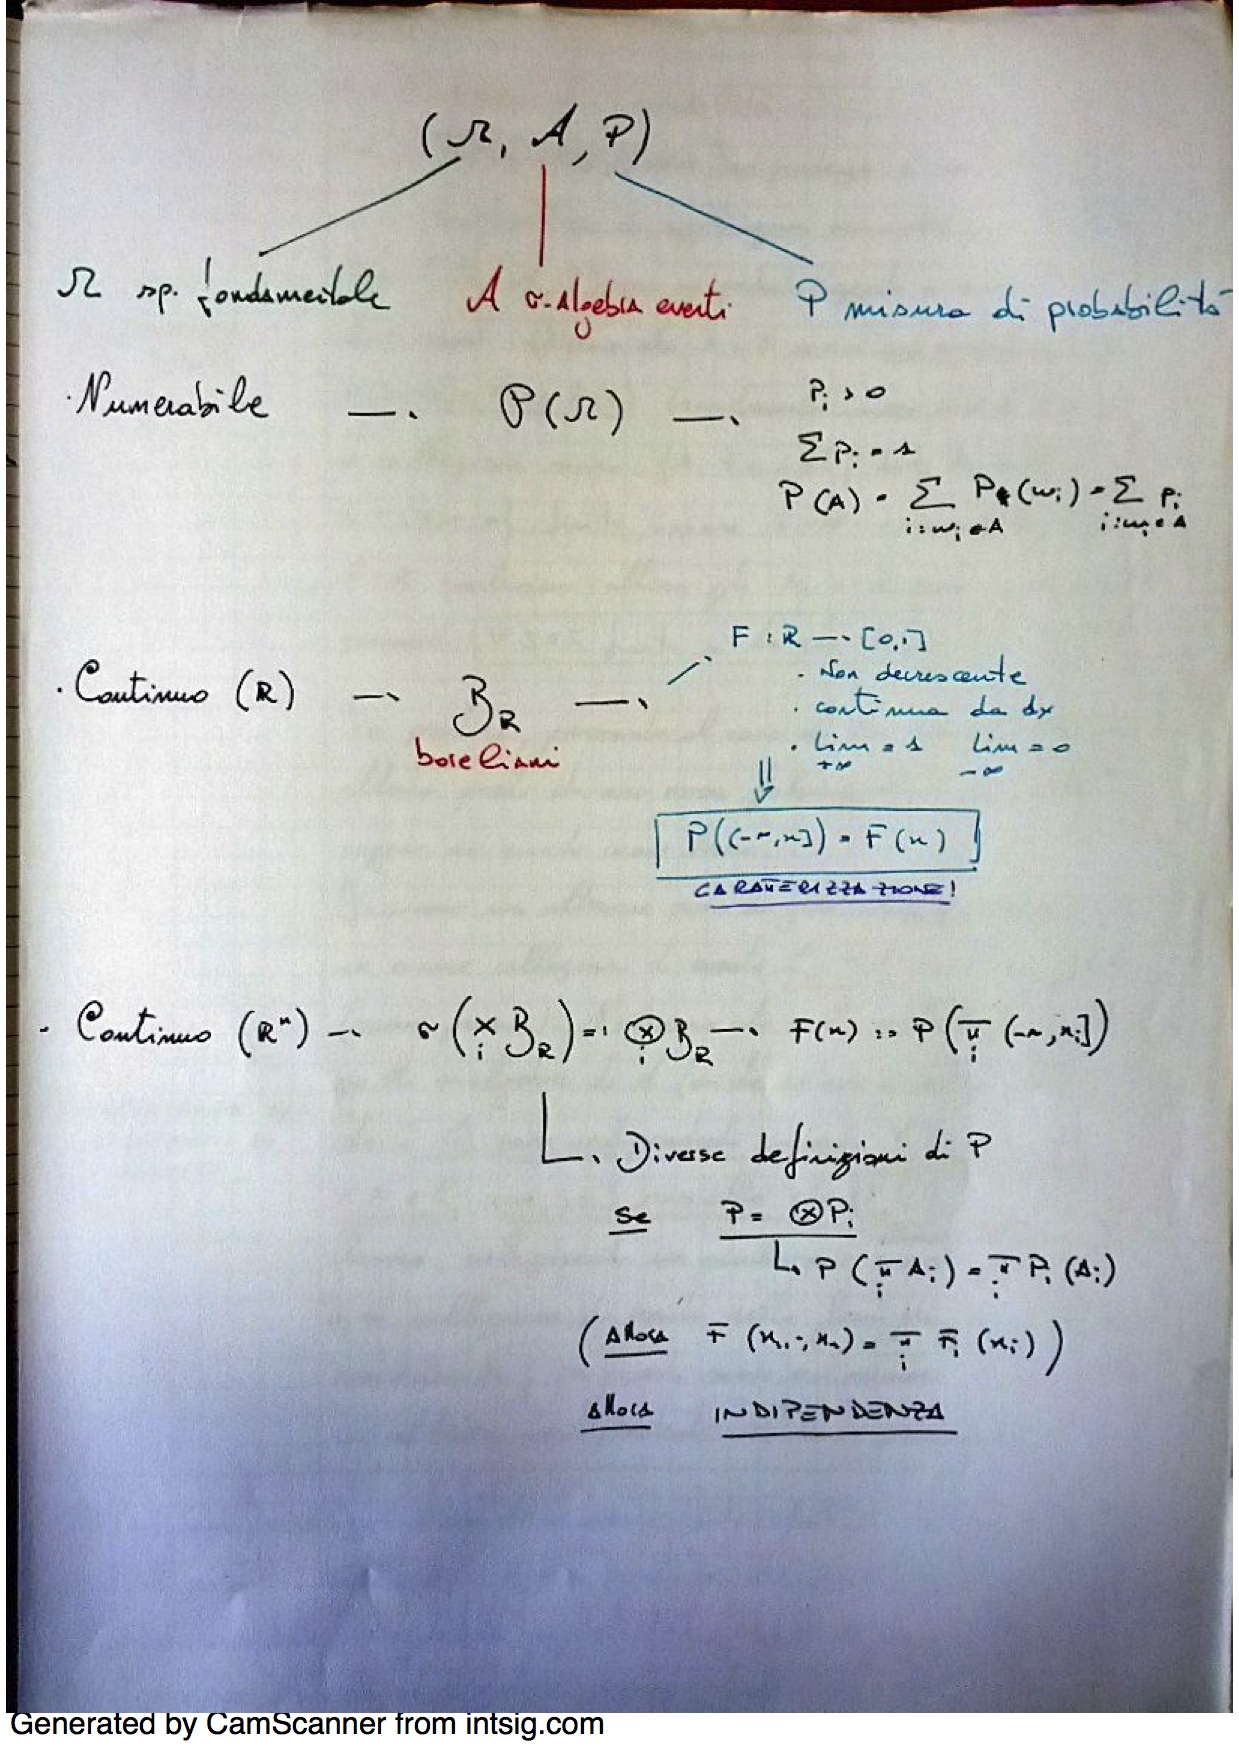 (Ω, A, P)
Ω sp. fondamentale A σ-Algebra eventi P misura di probabilità
· Numerabile → P(Ω) → Pi > 0
Σ Pi = 1
P(A) = Σ P(ωi) = Σ Pi
i:ωi∈A i:ωi∈A
F : R → [0,1]
· Continuo (R) → B_R →
boreliani
· Non decrescente
· continua da dx
· lim = 1 lim = 0
+∞ -∞
⇓
P((-∞,x]) = F(x)
CARATTERIZZAZIONE!
- Continuo (Rⁿ) → σ(× B_R) =: ⊗ B_R → F(x) := P(π (-∞,xi])
i i i
Diverse definizioni di P
se P = ⊗Pi
P(π Ai) = π Pi(Ai)
i i
(Allora F(x1,..,xn) = π Fi(xi))
i
Allora INDIPENDENZA
Generated by CamScanner from intsig.com